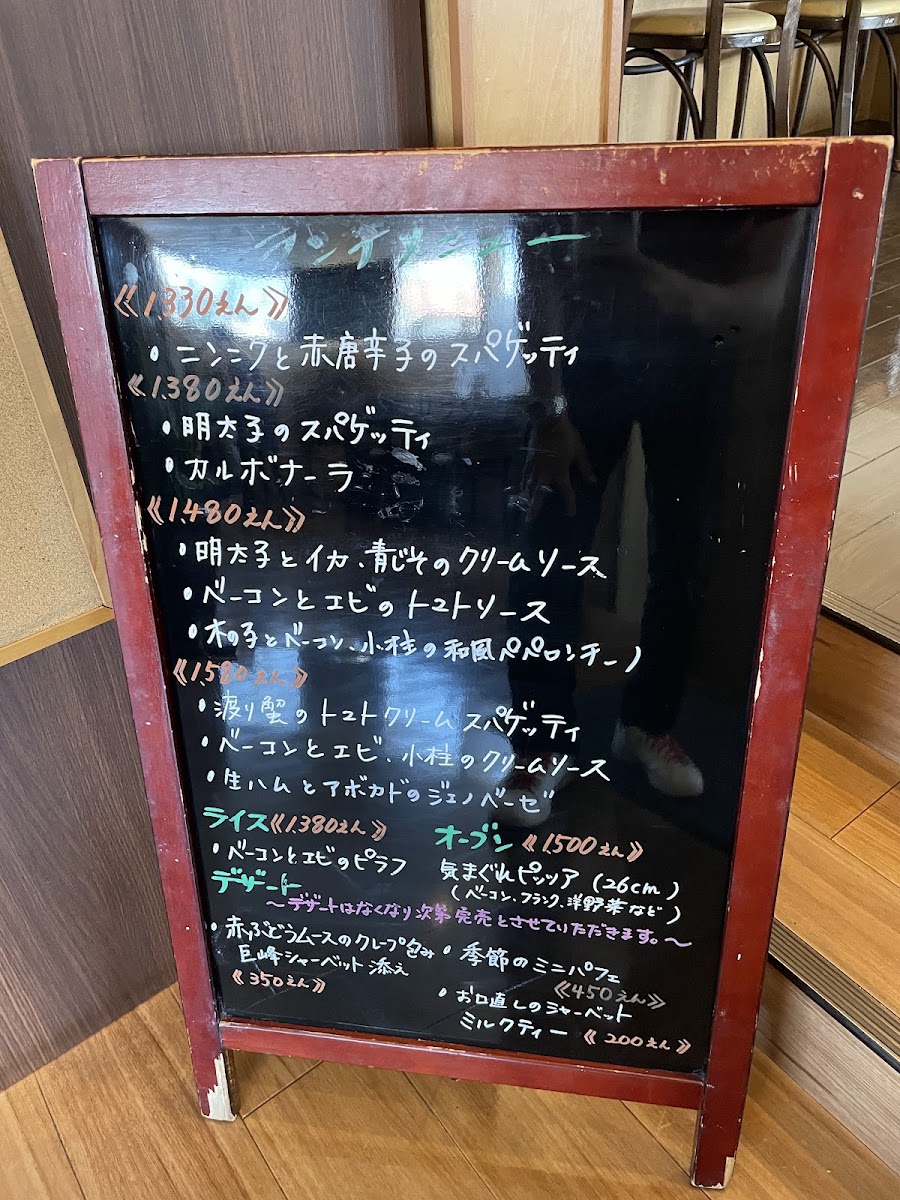 ランチメニュー
《1.330えん》
・ニンニクと赤唐辛子のスパゲッティ
《1.380えん》
・明太子のスパゲッティ
・カルボナーラ
《1.480えん》
・明太子とイカ、青じそのクリームソース
・ベーコンとエビのトマトソース
・木の子とベーコン、小柱の和風ペペロンチーノ
《1.580えん》
・渡り蟹のトマトクリームスパゲッティ
・ベーコンとエビ、小柱のクリームソース
・生ハムとアボカドのジェノベーゼ
ライス《1.380えん》
・ベーコンとエビのピラフ
オーブン《1.500えん》
気まぐれピッツァ(26cm)
(ベーコン、フランク、洋野菜など)
デザート
〜デザートはなくなり次第完売とさせていただきます。〜
・赤ぶどうムースのクレープ包み
巨峰シャーベット添え
《350えん》
・季節のミニパフェ
《450えん》
・お口直しのシャーベット
ミルクティー《200えん》